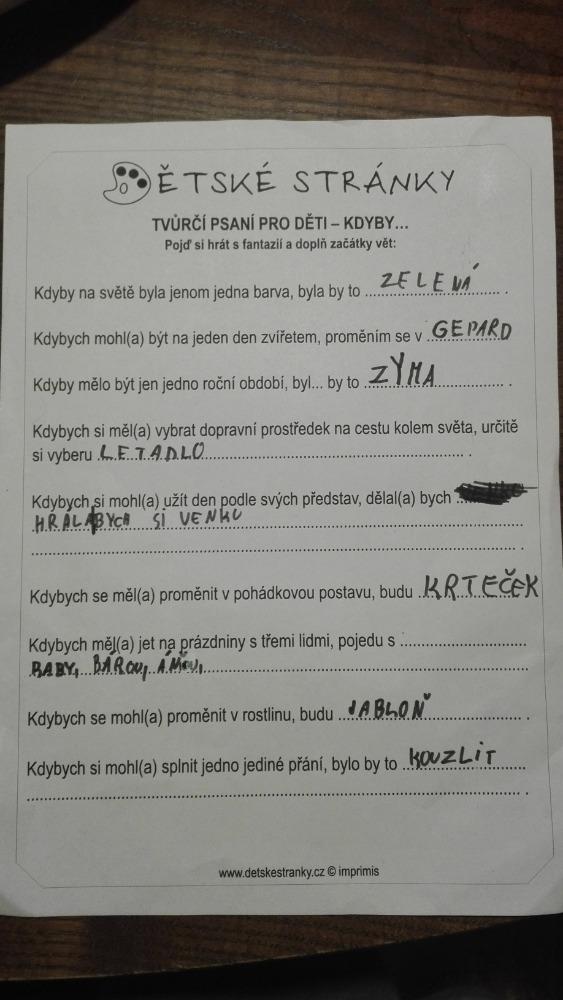 DĚTSKÉ STRÁNKY
TVŮRČÍ PSANÍ PRO DĚTI – KDYBY...
Pojď si hrát s fantazií a doplň začátky vět:
Kdyby na světě byla jenom jedna barva, byla by to ZELENÁ.
Kdybych mohl(a) být na jeden den zvířetem, proměním se v GEPARD
Kdyby mělo být jen jedno roční období, byl... by to ZYMA.
Kdybych si měl(a) vybrat dopravní prostředek na cestu kolem světa, určitě
si vyberu LETADLO.
Kdybych si mohl(a) užít den podle svých představ, dělal(a) bych
HRALABYCH SI VENKU
Kdybych se měl(a) proměnit v pohádkovou postavu, budu KRTEČEK
Kdybych měl(a) jet na prázdniny s třemi lidmi, pojedu s
BABY, BÁROU,
Kdybych se mohl(a) proměnit v rostlinu, budu JABLOŇ.
Kdybych si mohl(a) splnit jedno jediné přání, bylo by to KOUZLIT
www.detskestranky.cz © imprimis